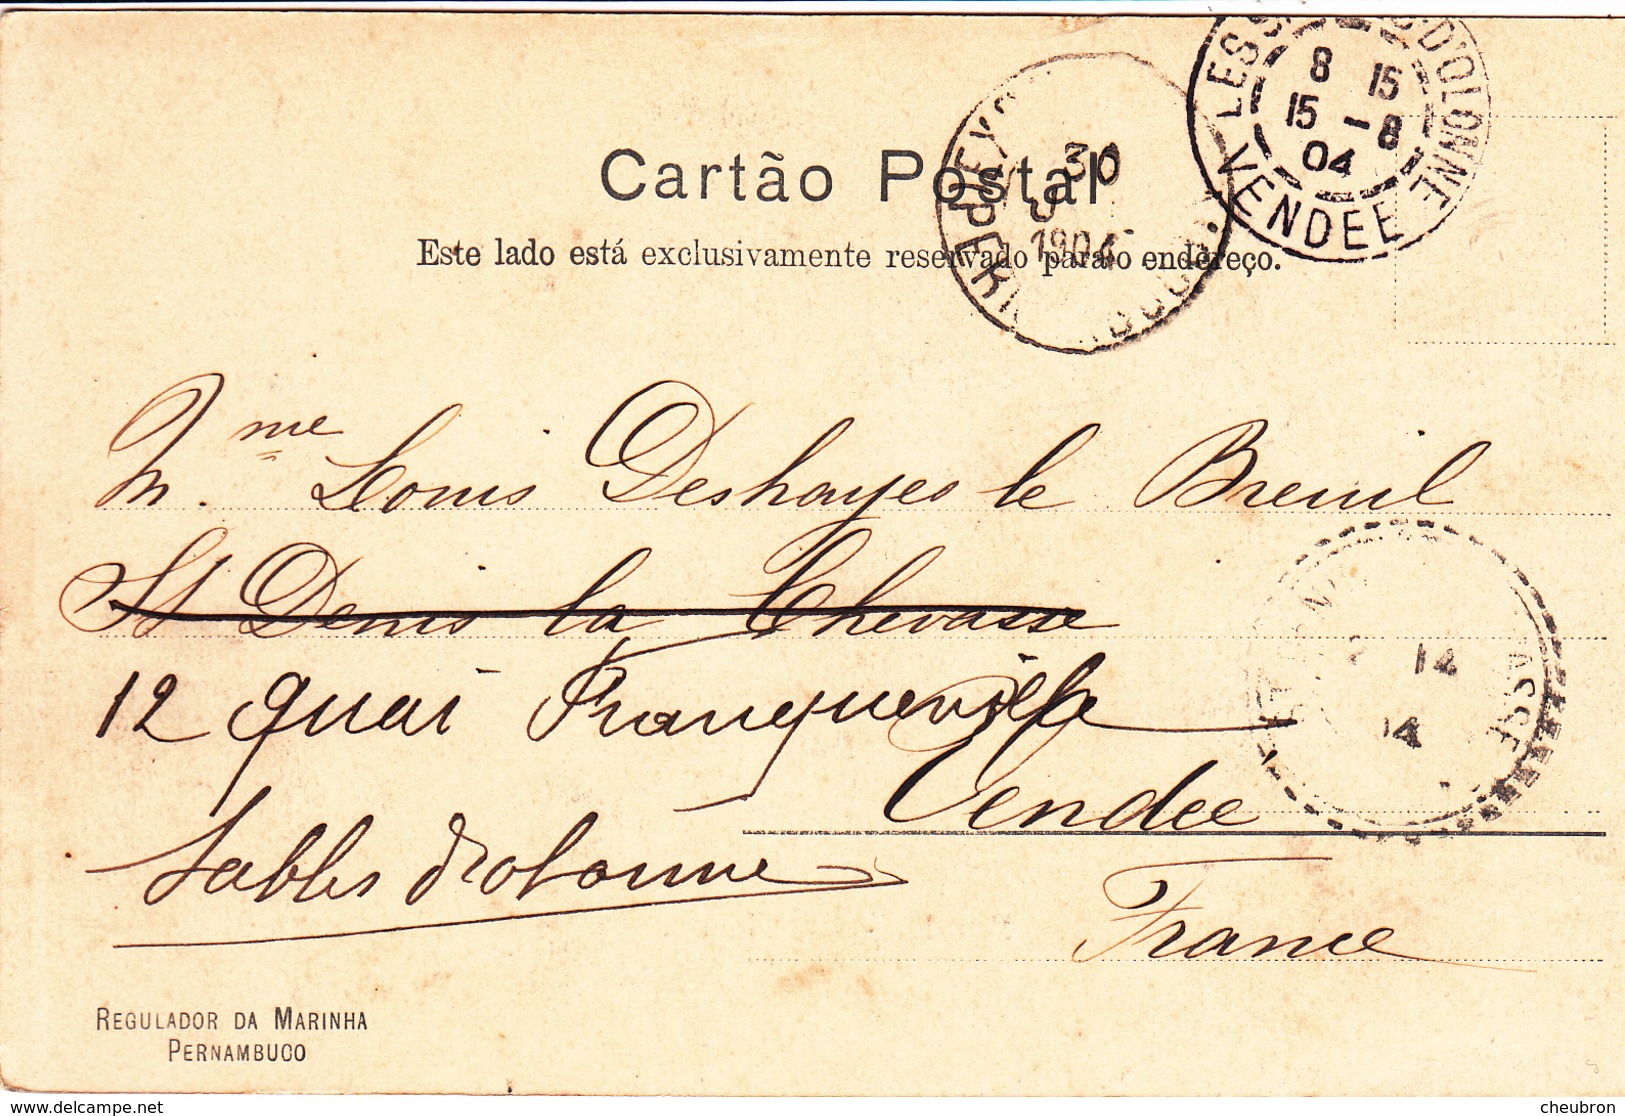 LES D'OLONNE
8 15
15 - 8
04
VENDEE
30
1904
Cartão Postal
Este lado está exclusivamente reservado para o endereço.
Mme. Louis Deshayes le Breuil
St Denis la Chevasse
12 quai Franqueville
Vendée
Sables d'olonne
France
14
14
REGULADOR DA MARINHA
PERNAMBUCO
http://www.delcampe.net
cheubron